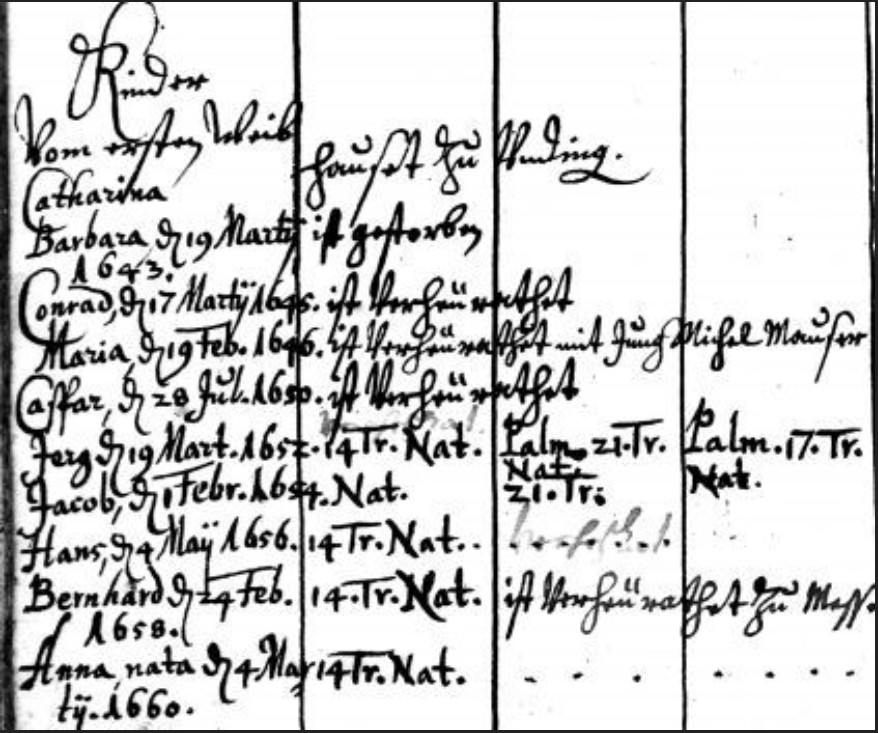 Kinder
Vom ersten Weib
hauset zu Wnding.
Catharina
Barbara, d 19 Martij ist gestorben
1643.
Conrad, d 17 Martij 1645. ist Verheürathet
Maria, d 19 Feb. 1646. ist Verheürathet mit Jung Michel Mauser
Casspar, d 28 Jul. 1650. ist Verheürathet
Jerg d 19 Mart. 1652. 14 Tr. Nat. Palm. 21. Tr. Palm. 17. Tr.
Nat. Nat.
Jacob, d 1 Febr. 1654. Nat. 21. Tr.
Hans, d 4 Maÿ 1656. 14 Tr. Nat. . . . . .
Bernhard d 24 Feb. 14. Tr. Nat. ist Verheürathet zu Mess
1658.
Anna nata d 4 Mar 14 Tr. Nat. . . . . . . .
tij. 1660.